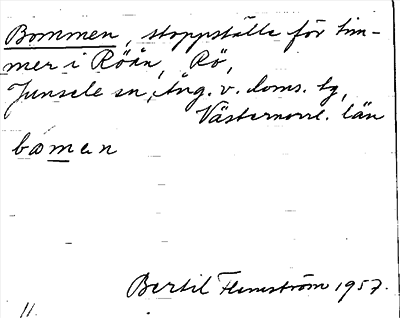 Bommen, stoppställe för tim-
mer i Röån, Rö,
Junsele sn, Ång. v. doms. tg,
Västernorrl. län
bomen
Bertil Flemström 1957.
11.